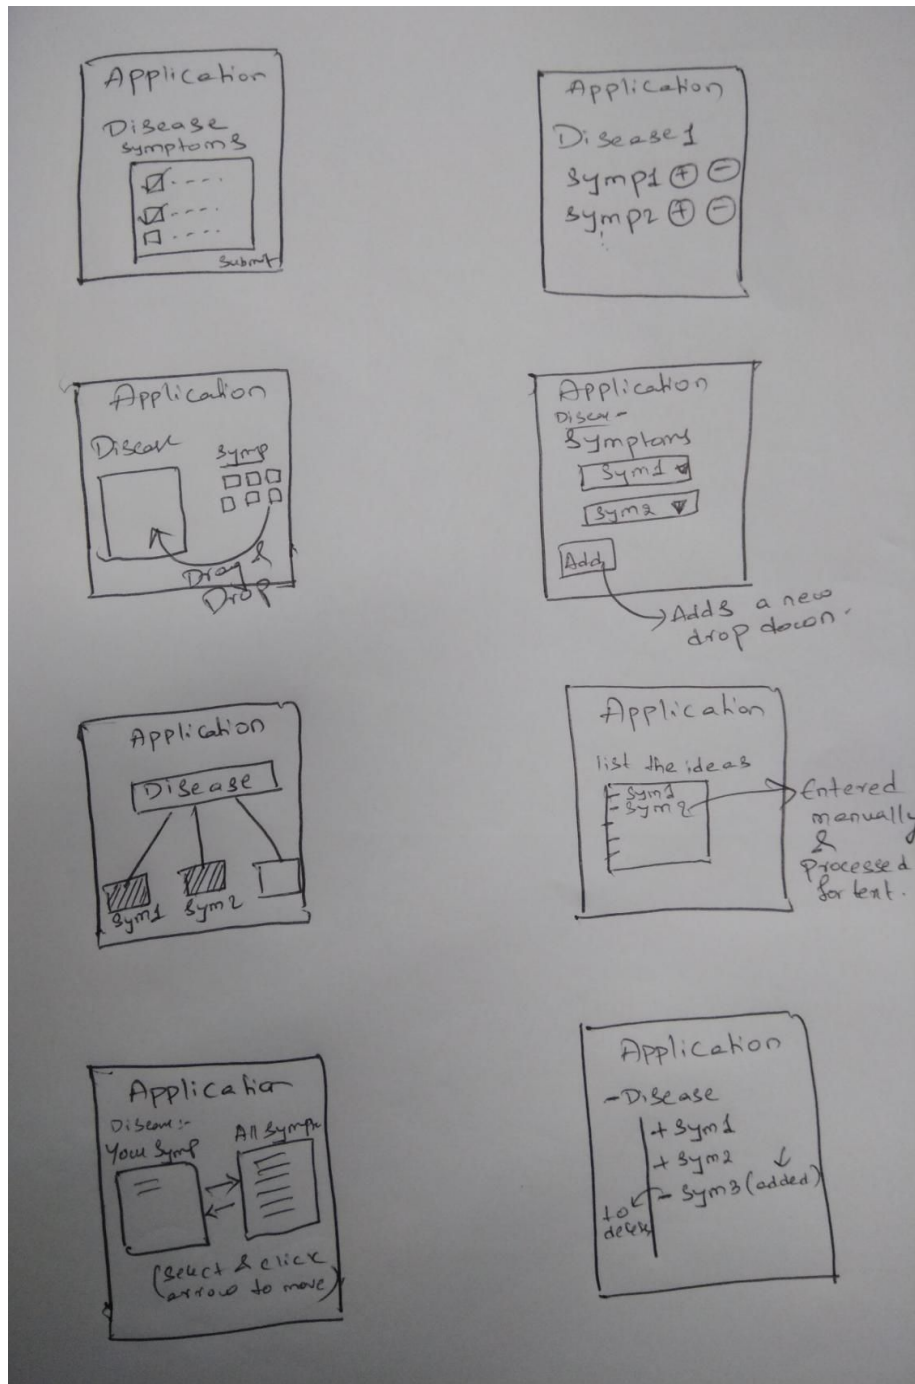 Application
Disease
symptoms
Submit
Application
Disease 1
Symp1 + -
Symp2 + -
Application
Disease
Symp
Drag &
Drop
Application
Disease -
Symptoms
Sym1
Sym2
Add
Adds a new
drop down.
Application
Disease
Sym1 Sym2
Application
list the ideas
- Sym1
- Sym2
Entered
manually
&
processed
for text.
Application
Disease:-
Your Symp
All Symp
(Select & click
arrow to move)
Application
- Disease
+ Sym1
+ Sym2
- Sym3 (added)
to
delete